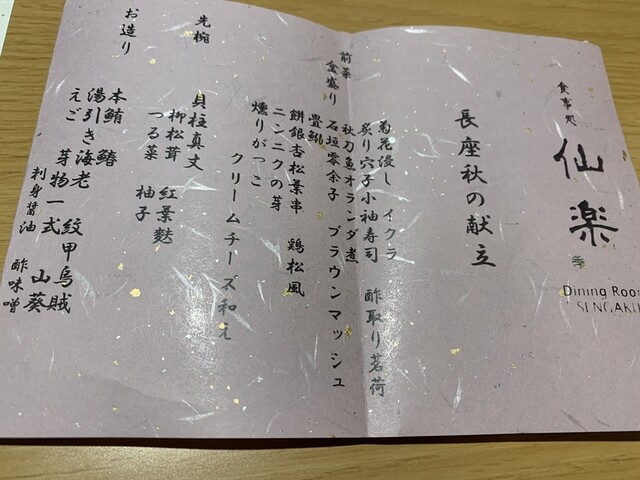 食事処
仙楽
Dining Room
SENGAKU
長座秋の献立
前菜
盆盛り
菊花浸し イクラ
炙り穴子小袖寿司 酢取り茗荷
秋刀魚オランダ煮
石垣零余子 ブラウンマッシュ
畳鰯
餅銀杏松葉串 鶏松風
ニンニクの芽
燻りがっこ
クリームチーズ和え
先椀
貝柱真丈 紅葉麩
柳松茸 柚子
つる菜
お造り
本鮪 鰆 紋甲烏賊
湯引き海老 山葵
えご 芽物一式
刺身醤油 酢味噌